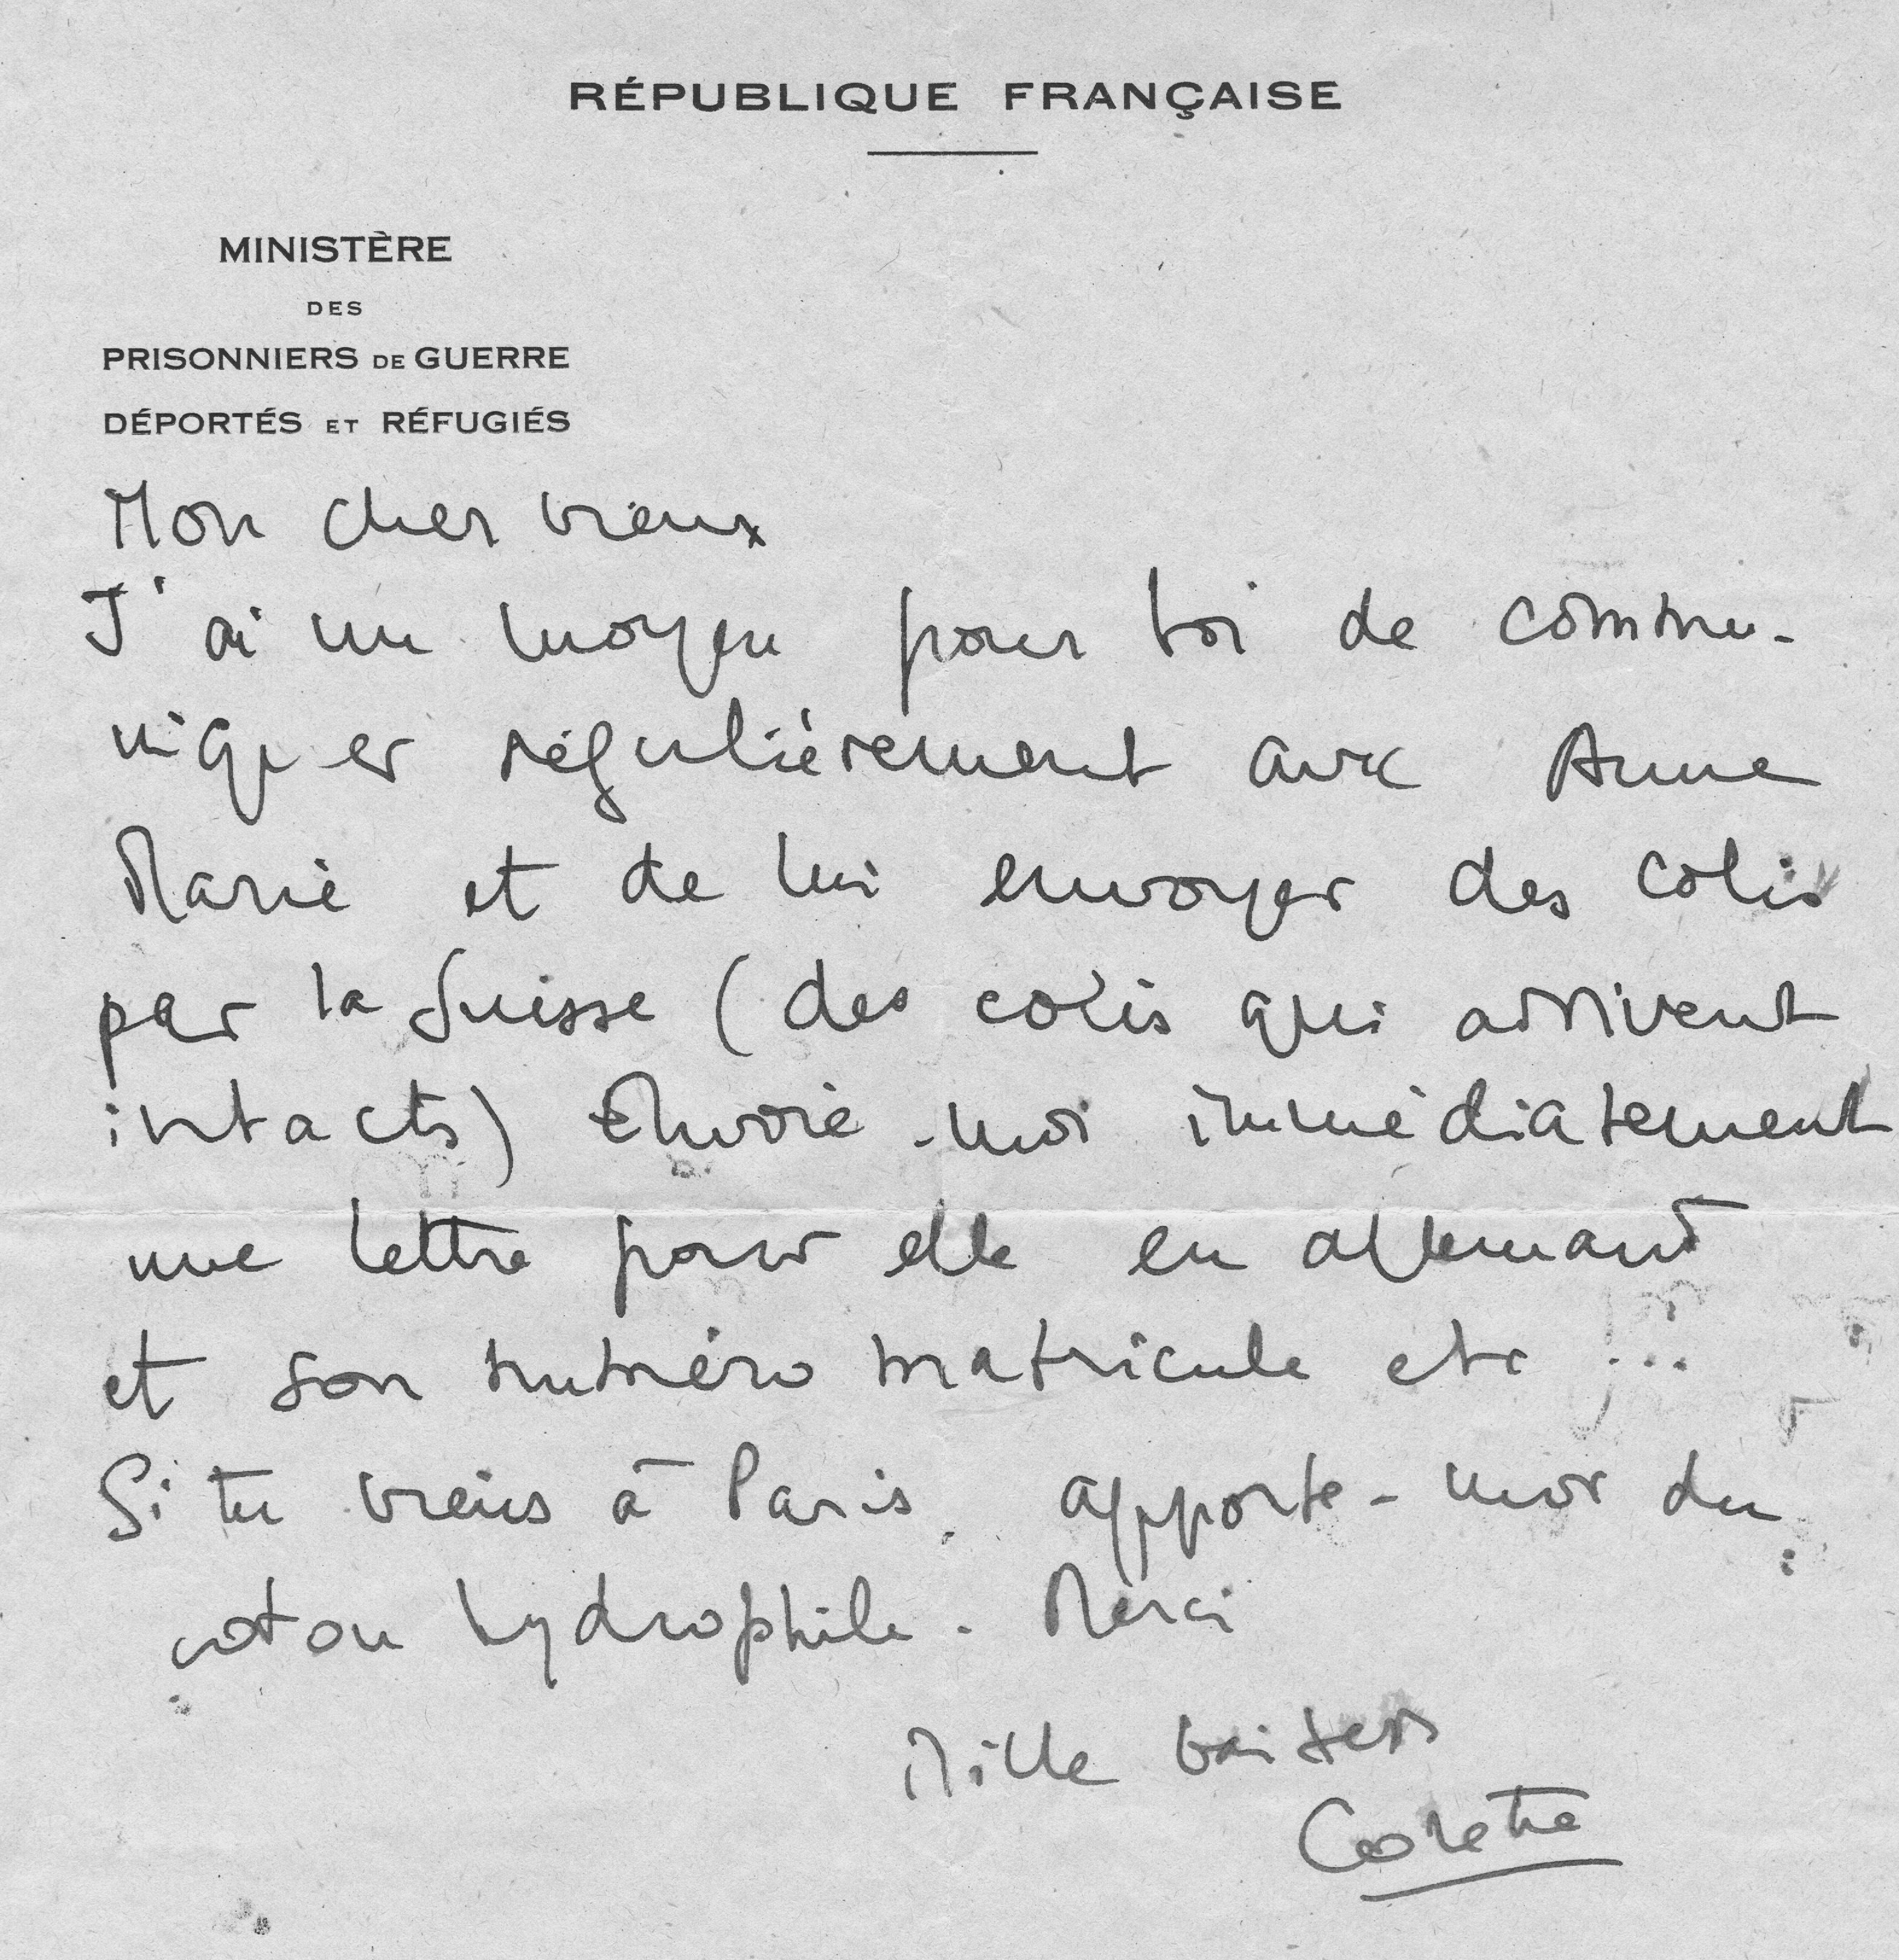 RÉPUBLIQUE FRANÇAISE
MINISTÈRE
DES
PRISONNIERS DE GUERRE
DÉPORTÉS ET RÉFUGIÉS
Mon cher vieux
J'ai un moyen pour toi de commu-
niquer régulièrement avec Anne
Marie et de lui envoyer des colis
par la Suisse (des colis qui arrivent
intacts) Envoie-moi immédiatement
une lettre pour elle en allemand
et son numéro matricule etc ...
Si tu viens à Paris, apporte-moi du
coton hydrophile. Merci
Mille baisers
Colette